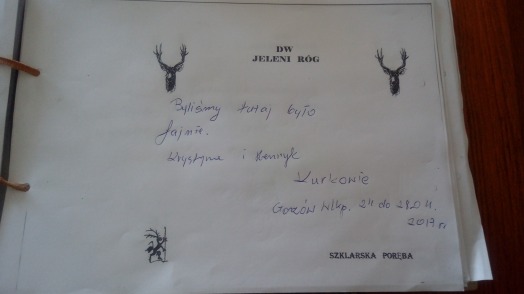 DW
JELENI RÓG
Byliśmy tutaj było
fajnie.
Krystyna i Henryk
Kurkowie
Gorzów Wlkp. 24 do 28.04.
2017 r.
SZKLARSKA PORĘBA